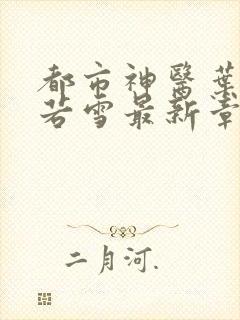 都市神醫葉
若雪最新章
二月河.